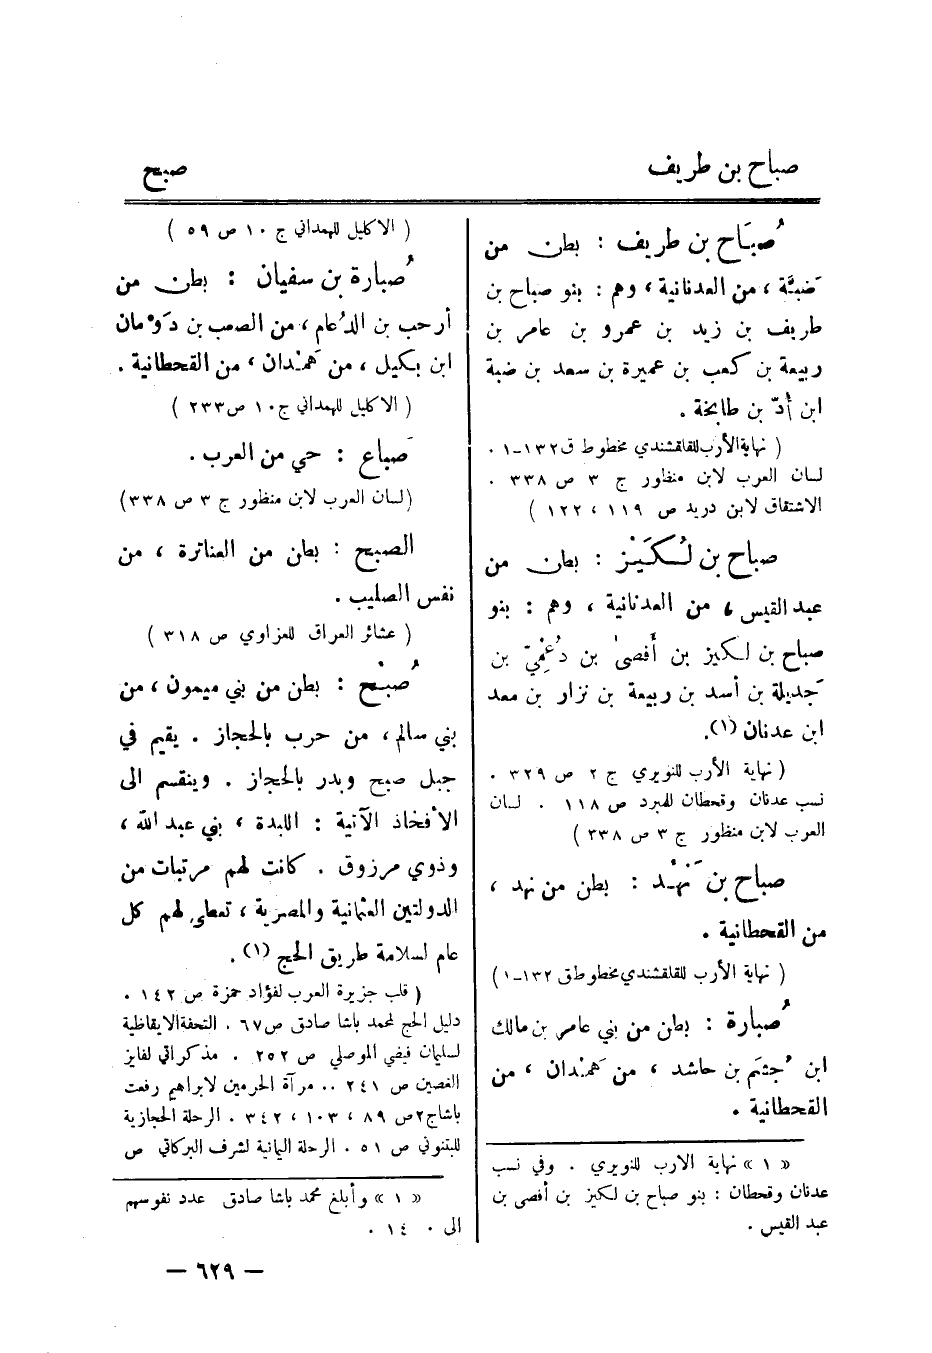 صباح بن طريف
صبح
صُبَاح بن طريف : بطن من
ضَبَّة ، من العدنانية ، وهم : بنو صباح بن
طريف بن زيد بن عمرو بن عامر بن
ربيعة بن كعب بن عميرة بن سعد بن ضبة
ابن أُدّ بن طابخة .
( نهاية الأرب للقلقشندي مخطوط ق ١٣٢-١ .
لسان العرب لابن منظور ج ٣ ص ٣٣٨ .
الاشتقاق لابن دريد ص ١١٩ ، ١٢٢ )
صباح بن لُكَيْز : بطن من
عبد القيس ، من العدنانية ، وهم : بنو
صباح بن لكيز بن أَفصىٰ بن دُعْمِيّ بن
جَديلة بن أسد بن ربيعة بن نزار بن معد
ابن عدنان (١).
( نهاية الأرب للنويري ج ٢ ص ٣٢٩ .
نسب عدنان وقحطان للمبرد ص ١١٨ . لسان
العرب لابن منظور ج ٣ ص ٣٣٨ )
صباح بن نَهْد : بطن من نهد ،
من القحطانية .
( نهاية الأرب للقلقشندي مخطوط ق ١٣٢-١ )
صُبارة : بطن من بني عامر بن مالك
ابن جُشَم بن حاشد ، من هَمْدان ، من
القحطانية .
« ١ » نهاية الارب للنويري . وفي نسب
عدنان وقحطان : بنو صباح بن لكيز بن أفصى بن
عبد القيس .
( الاكليل للهمداني ج ١٠ ص ٥٩ )
صُبارة بن سفيان : بطن من
أرحب بن الدُعام ، من الصعب بن دَوْمان
ابن بكيل ، من هَمْدان ، من القحطانية .
( الاكليل للهمداني ج ١٠ ص ٢٣٣ )
صَباع : حي من العرب .
(لسان العرب لابن منظور ج ٣ ص ٣٣٨)
الصبح : بطن من العناترة ، من
نفس الصليب .
( عشائر العراق للعزاوي ص ٣١٨ )
صُبْح : بطن من بني ميمون ، من
بني سالم ، من حرب بالحجاز . يقيم في
جبل صبح وبدر بالحجاز . وينقسم الى
الأفخاذ الآتية : اللبدة ، بني عبد الله ،
وذوي مرزوق . كانت لهم مرتبات من
الدولتين العثمانية والمصرية ، تعطى لهم كل
عام لسلامة طريق الحج (١) .
( قلب جزيرة العرب لفؤاد حمزة ص ١٤٢ .
دليل الحج لمحمد باشا صادق ص ٦٧ . التحفة الايقاظية
لسليمان فيضي الموصلي ص ٢٥٢ . مذكراتي لفايز
الغصين ص ٢٤١ .. مرآة الحرمين لابراهيم رفعت
باشا ج ٢ ص ٨٩ ، ١٠٣ ، ٣٤٢ . الرحلة الحجازية
للبتنوني ص ٥١ . الرحلة اليمانية لشرف البركاتي ص
« ١ » وأبلغ محمد باشا صادق عدد نفوسهم
الى ١٤٠٠ .
— ٦٢٩ —